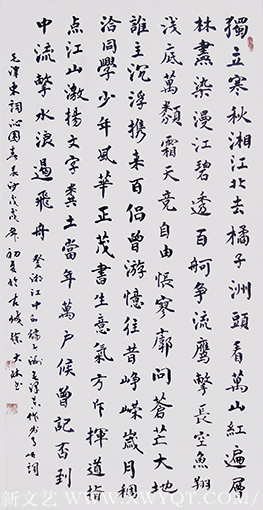 獨立寒秋湘江北去橘子洲頭看萬山紅遍層
林盡染漫江碧透百舸争流鹰擊長空魚翔
浅底萬類霜天竞自由怅寥廓問蒼茫大地
誰主沉浮携来百侣曾游憶往昔峥嵘歲月稠
洽同學少年風華正茂書生意氣方斥揮道指
点江山激揚文字糞土當年萬户侯曾記否到
中流擊水浪遏飛舟
毛澤東詞沁園春長沙戊戌年初夏於古城
新文艺 -WWW.XWYQT.COM-